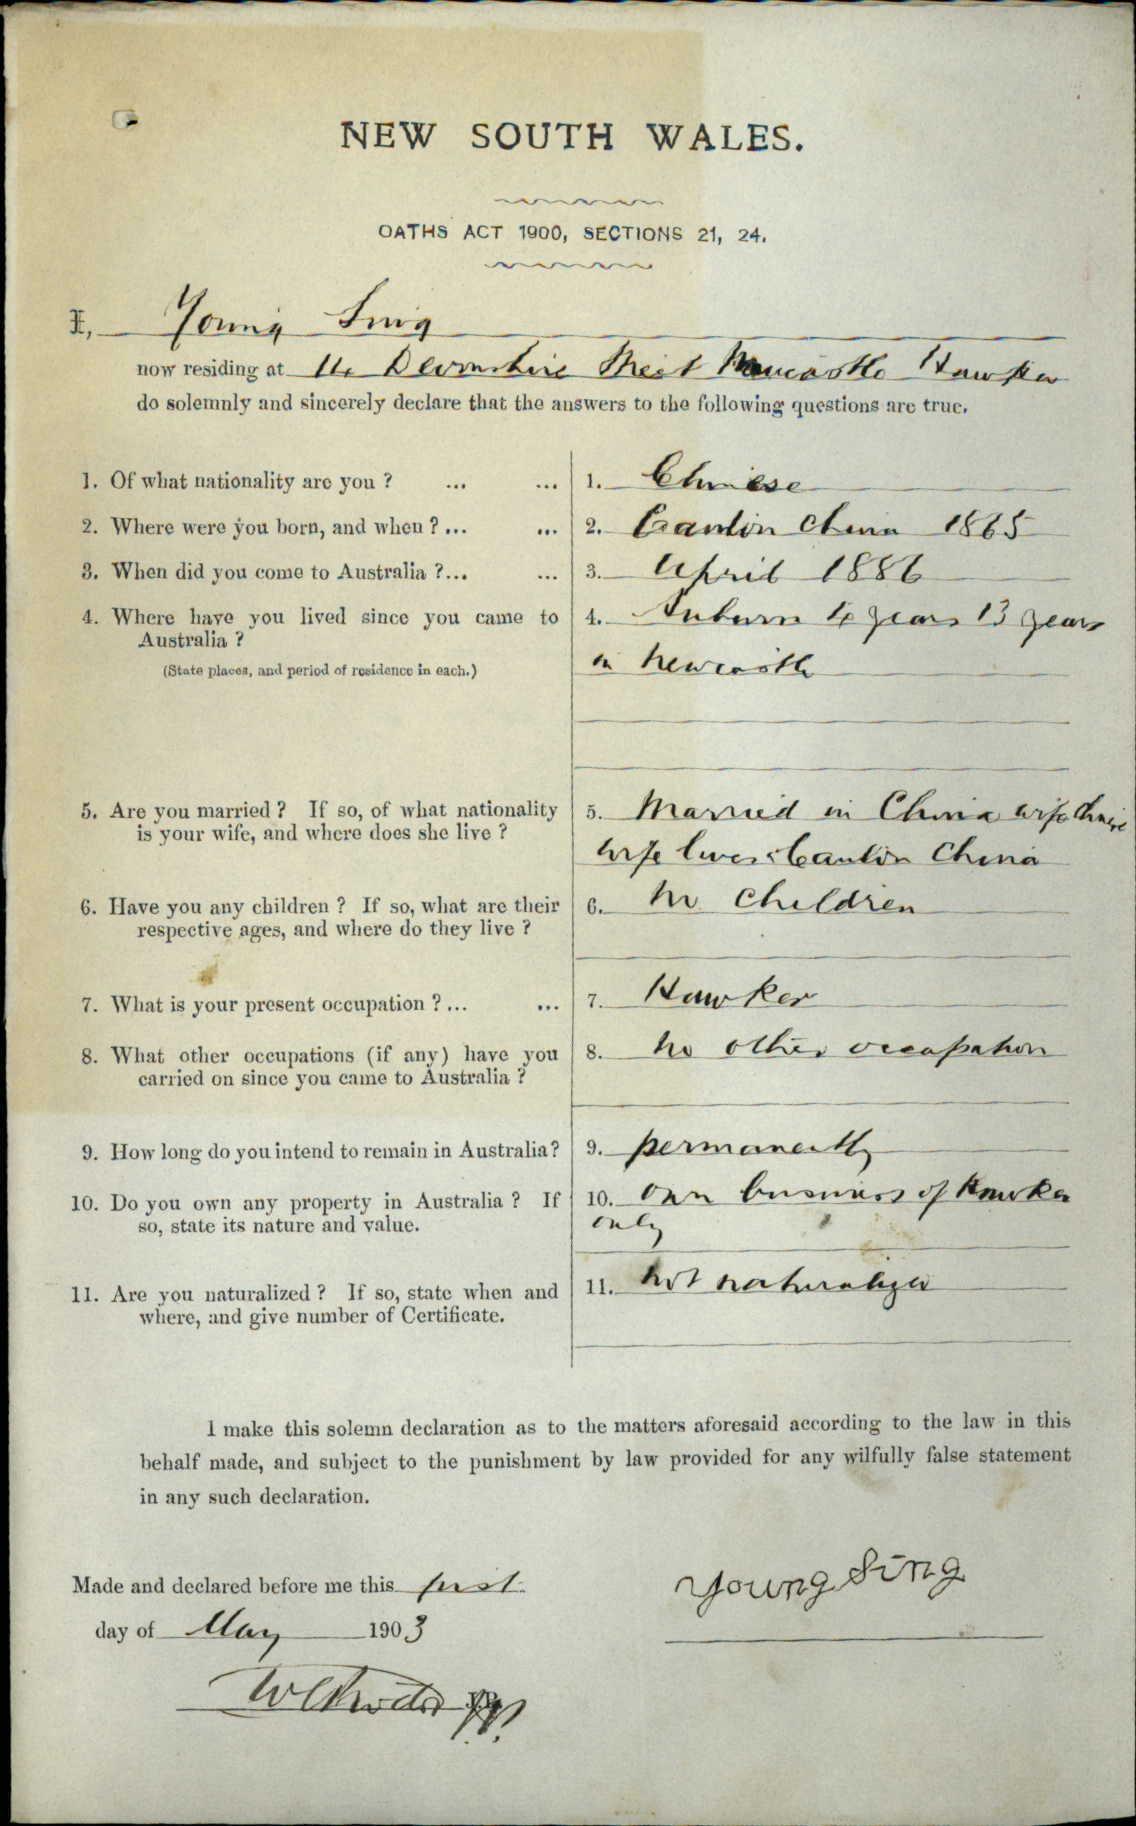 NEW SOUTH WALES.
OATHS ACT 1900, SECTIONS 21, 24.
I, Young Sing
now residing at Devonshire Street Newcastle Hawker
do solemnly and sincerely declare that the answers to the following questions are true.
1. Of what nationality are you ? ... ... 1. Chinese
2. Where were you born, and when ? ... ... 2. Canton China 1865
3. When did you come to Australia ?... ... 3. April 1886
4. Where have you lived since you came to 4. Auburn 4 years 13 years
Australia ?
(State places, and period of residence in each.) in Newcastle
5. Are you married ? If so, of what nationality 5. Married in China wife Chinese
is your wife, and where does she live ?
wife lives Canton China
6. Have you any children ? If so, what are their 6. No Children
respective ages, and where do they live ?
7. What is your present occupation ?... ... 7. Hawker
8. What other occupations (if any) have you 8. No other occupation
carried on since you came to Australia ?
9. How long do you intend to remain in Australia? 9. permanently
10. Do you own any property in Australia ? If 10. own business of Hawker
so, state its nature and value. only
11. Are you naturalized ? If so, state when and 11. Not naturalized
where, and give number of Certificate.
I make this solemn declaration as to the matters aforesaid according to the law in this
behalf made, and subject to the punishment by law provided for any wilfully false statement
in any such declaration.
Made and declared before me this first
Young Sing
day of May 1903